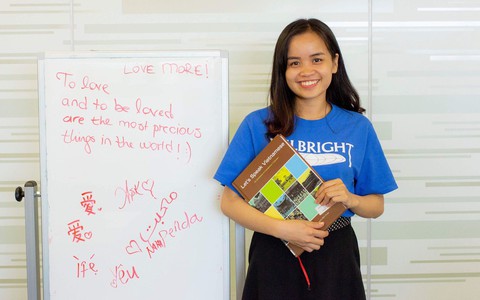 LOVE MORE!
To love
and to be loved
are the most precious
things in the world! :)
爱
爱
Penda
Ìfẹ́
Yêu
LBRIGHT
Let's Speak Vietnamese